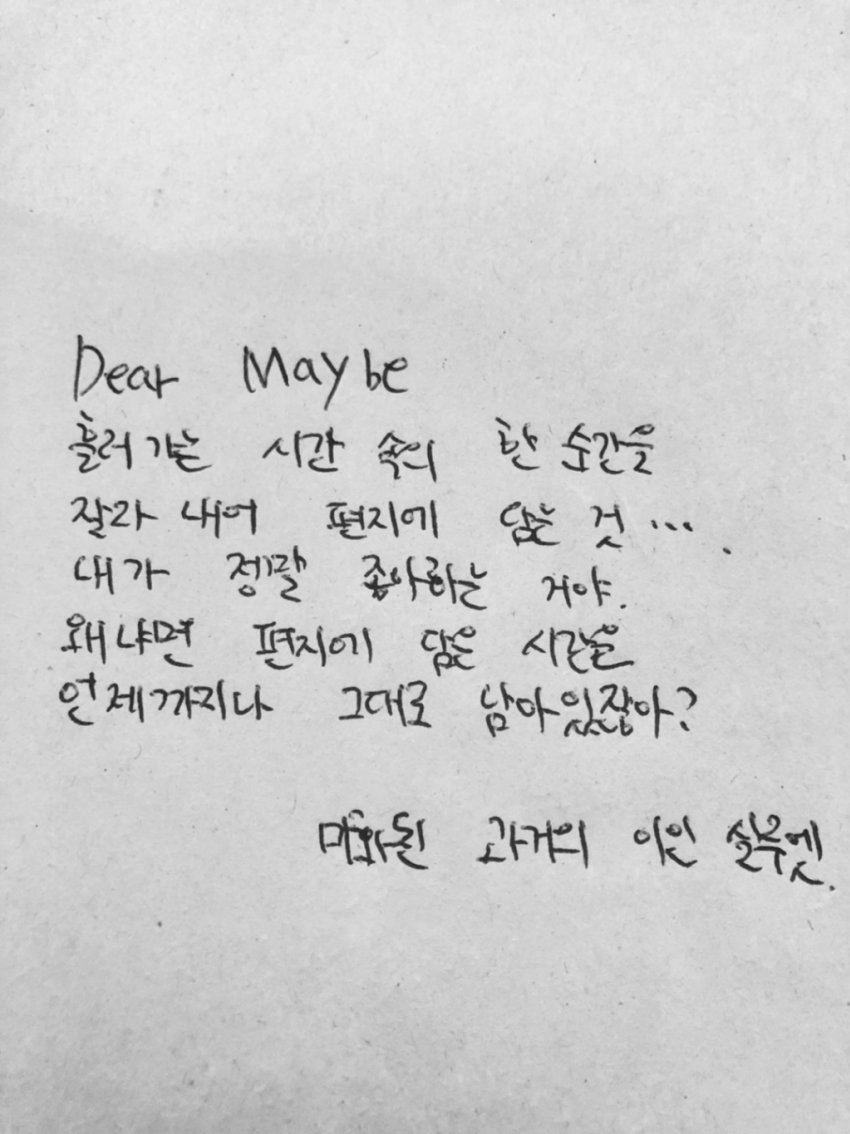 Dear Maybe
흘러가는 시간 속의 한 순간을
잘라 내어 편지에 담는 것...
내가 정말 좋아하는 거야.
왜냐면 편지에 담은 시간은
언제까지나 그대로 남아있잖아?
미화된 과거의 이인 실루엣.